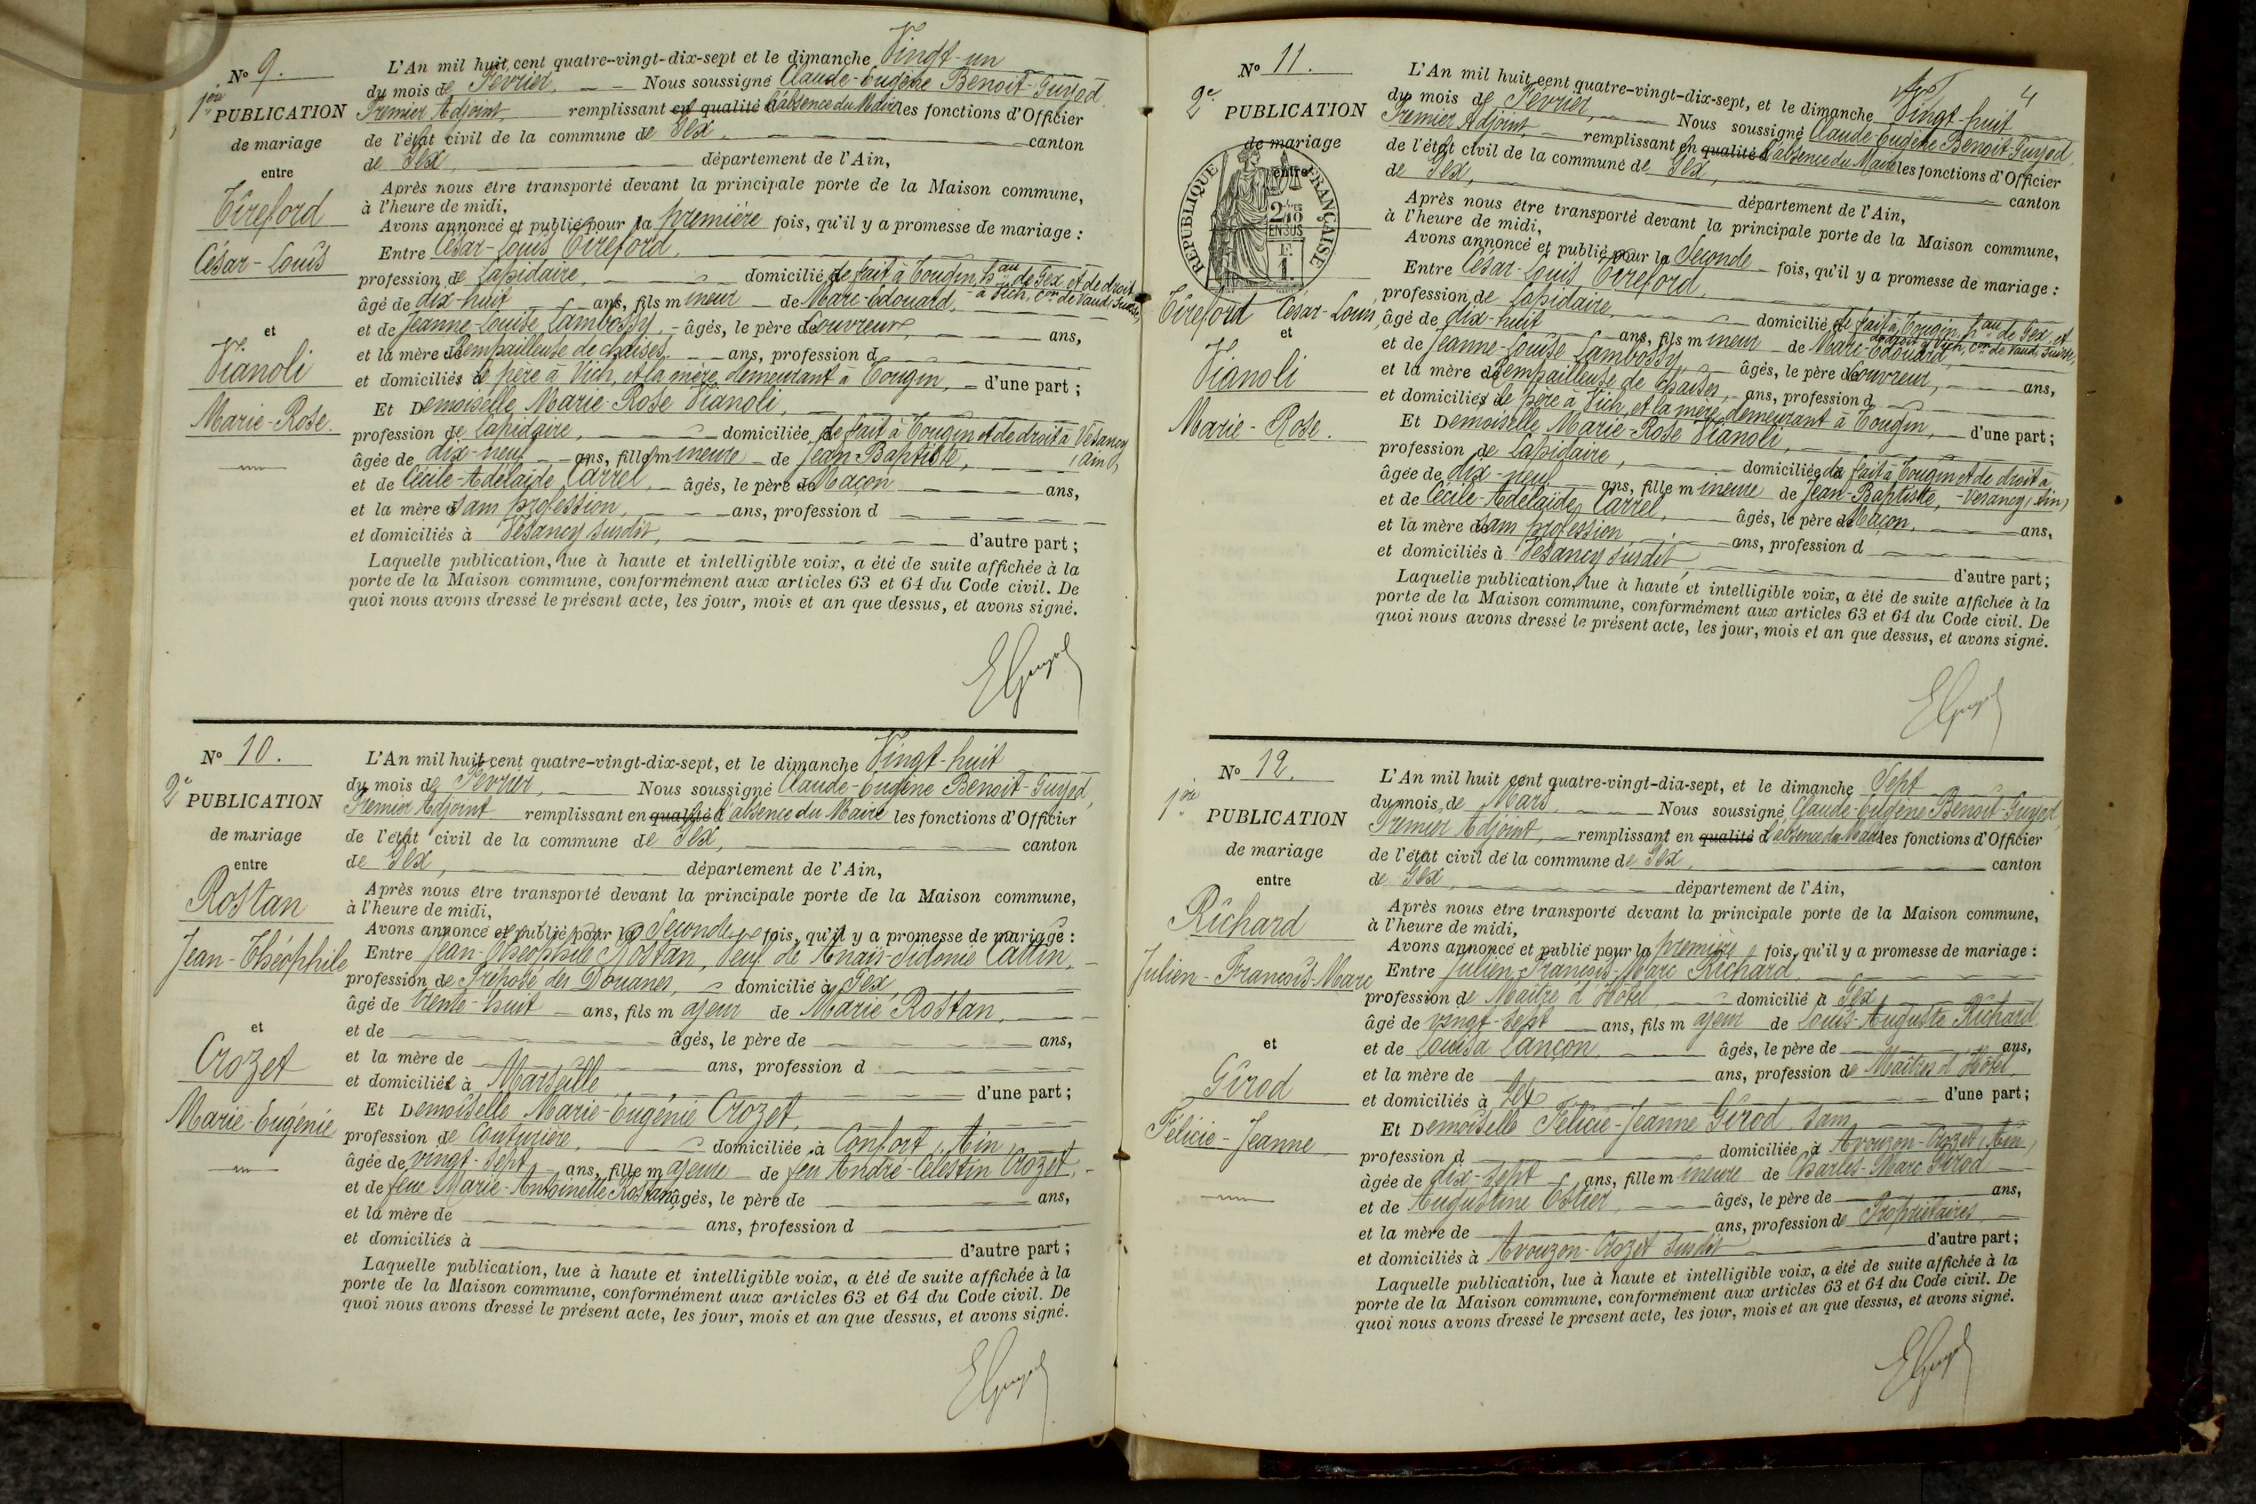 N° 9.
1ère PUBLICATION
de mariage
entre
Tireford
César-Louis
et
Vianoli
Marie-Rose.
L'An mil huit cent quatre-vingt-dix-sept et le dimanche Vingt-un
du mois de Février, Nous soussigné Claude-Eugène Benoit-Guyod
Premier Adjoint, remplissant en qualité d l'absence du Maire les fonctions d'Officier
de l'état civil de la commune de Gex, canton
de Gex, département de l'Ain,
Après nous être transporté devant la principale porte de la Maison commune,
à l'heure de midi,
Avons annoncé et publié pour la première fois, qu'il y a promesse de mariage :
Entre César-Louis Tireford,
profession de Lapidaire, domicilié de fait à Tougin, hau de Gex et de droit
à Vich, con de Vaud, Suisse,
âgé de dix-huit ans, fils mineur de Marc-Edouard,
et de Jeanne-Louise Lambossy, âgés, le père de Couvreur, ans,
et la mère de Rempailleuse de chaises, ans, profession d
et domiciliés à le père à Vich, et la mère demeurant à Tougin, d'une part ;
Et Demoiselle Marie-Rose Vianoli,
profession de Lapidaire, domiciliée de fait à Tougin et de droit à Vesancy
(Ain),
âgée de dix-neuf ans, fille mineure de Jean-Baptiste,
et de Cécile-Adélaïde Carrel, âgés, le père de Maçon ans,
et la mère de sans profession, ans, profession d
et domiciliés à Vesancy susdit, d'autre part ;
Laquelle publication, lue à haute et intelligible voix, a été de suite affichée à la
porte de la Maison commune, conformément aux articles 63 et 64 du Code civil. De
quoi nous avons dressé le présent acte, les jour, mois et an que dessus, et avons signé.
EGuyod
N° 10.
2e PUBLICATION
de mariage
entre
Rostan
Jean-Théophile
et
Crozet
Marie-Eugénie
L'An mil huit cent quatre-vingt-dix-sept, et le dimanche Vingt-huit
du mois de Février, Nous soussigné Claude-Eugène Benoit-Guyod,
Premier Adjoint remplissant en qualité d l'absence du Maire les fonctions d'Officier
de l'état civil de la commune de Gex, canton
de Gex, département de l'Ain,
Après nous être transporté devant la principale porte de la Maison commune,
à l'heure de midi,
Avons annoncé et publié pour la Seconde fois, qu'il y a promesse de mariage :
Entre Jean-Théophile Rostan, veuf de Anaïs-Sidonie Cattin,
profession de Préposé des Douanes, domicilié à Gex,
âgé de trente-huit ans, fils majeur de Marie Rostan,
et de âgés, le père de ans,
et la mère de ans, profession d
et domiciliée à Marseille d'une part ;
Et Demoiselle Marie-Eugénie Crozet,
profession de Couturière, domiciliée à Confort, Ain,
âgée de vingt-sept ans, fille majeure de feu André-Célestin Crozet,
et de feue Marie-Antoinette Rostan, âgés, le père de ans,
et la mère de ans, profession d
et domiciliés à d'autre part ;
Laquelle publication, lue à haute et intelligible voix, a été de suite affichée à la
porte de la Maison commune, conformément aux articles 63 et 64 du Code civil. De
quoi nous avons dressé le présent acte, les jour, mois et an que dessus, et avons signé.
EGuyod
4
N° 11.
2e PUBLICATION
de mariage
entre
RÉPUBLIQUE FRANÇAISE
2/10 EN SUS
F. 1.
Tireford César-Louis,
et
Vianoli
Marie-Rose.
L'An mil huit cent quatre-vingt-dix-sept, et le dimanche Vingt-huit
du mois de Février, Nous soussigné Claude-Eugène Benoit-Guyod,
Premier Adjoint, remplissant en qualité d l'absence du Maire les fonctions d'Officier
de l'état civil de la commune de Gex, canton
de Gex, département de l'Ain,
Après nous être transporté devant la principale porte de la Maison commune,
à l'heure de midi,
Avons annoncé et publié pour la Seconde fois, qu'il y a promesse de mariage :
Entre César-Louis Tireford,
profession de Lapidaire, domicilié de fait à Tougin, hau de Gex, et
de droit à Vich, con de Vaud, Suisse,
âgé de dix-huit ans, fils mineur de Marc-Edouard,
et de Jeanne-Louise Lambossy, âgés, le père de Couvreur, ans,
et la mère de Rempailleuse de chaises, ans, profession d
et domiciliés le père à Vich, et la mère demeurant à Tougin, d'une part ;
Et Demoiselle Marie-Rose Vianoli,
profession de Lapidaire, domiciliée de fait à Tougin et de droit à
Vesancy (Ain)
âgée de dix-neuf ans, fille mineure de Jean-Baptiste,
et de Cécile-Adélaïde Carrel, âgés, le père de Maçon, ans,
et la mère de sans profession ans, profession d
et domiciliés à Vesancy susdit, d'autre part ;
Laquelle publication, lue à haute et intelligible voix, a été de suite affichée à la
porte de la Maison commune, conformément aux articles 63 et 64 du Code civil. De
quoi nous avons dressé le présent acte, les jour, mois et an que dessus, et avons signé.
EGuyod
N° 12.
1ère PUBLICATION
de mariage
entre
Richard
Julien-François-Marc
et
Girod
Félicie-Jeanne
L'An mil huit cent quatre-vingt-dix-sept, et le dimanche Sept
du mois de Mars Nous soussigné Claude-Eugène Benoit-Guyod,
Premier Adjoint, remplissant en qualité d l'absence du Maire les fonctions d'Officier
de l'état civil de la commune de Gex canton
de Gex, département de l'Ain,
Après nous être transporté devant la principale porte de la Maison commune,
à l'heure de midi,
Avons annoncé et publié pour la première fois, qu'il y a promesse de mariage :
Entre Julien-François-Marc Richard
profession de Maître d'Hôtel domicilié à Gex
âgé de vingt-sept ans, fils majeur de Louis-Auguste Richard
et de Louisa Lançon âgés, le père de ans,
et la mère de ans, profession de Maîtres d'Hôtel
et domiciliés à Gex d'une part ;
Et Demoiselle Félicie-Jeanne Girod sans
profession d domiciliée à Avouzon-Crozet (Ain)
âgée de dix-sept ans, fille mineure de Charles-Marc Girod
et de Augustine Estier, âgés, le père de ans,
et la mère de ans, profession de Propriétaires
et domiciliés à Avouzon-Crozet susdit d'autre part ;
Laquelle publication, lue à haute et intelligible voix, a été de suite affichée à la
porte de la Maison commune, conformément aux articles 63 et 64 du Code civil. De
quoi nous avons dressé le présent acte, les jour, mois et an que dessus, et avons signé.
EGuyod